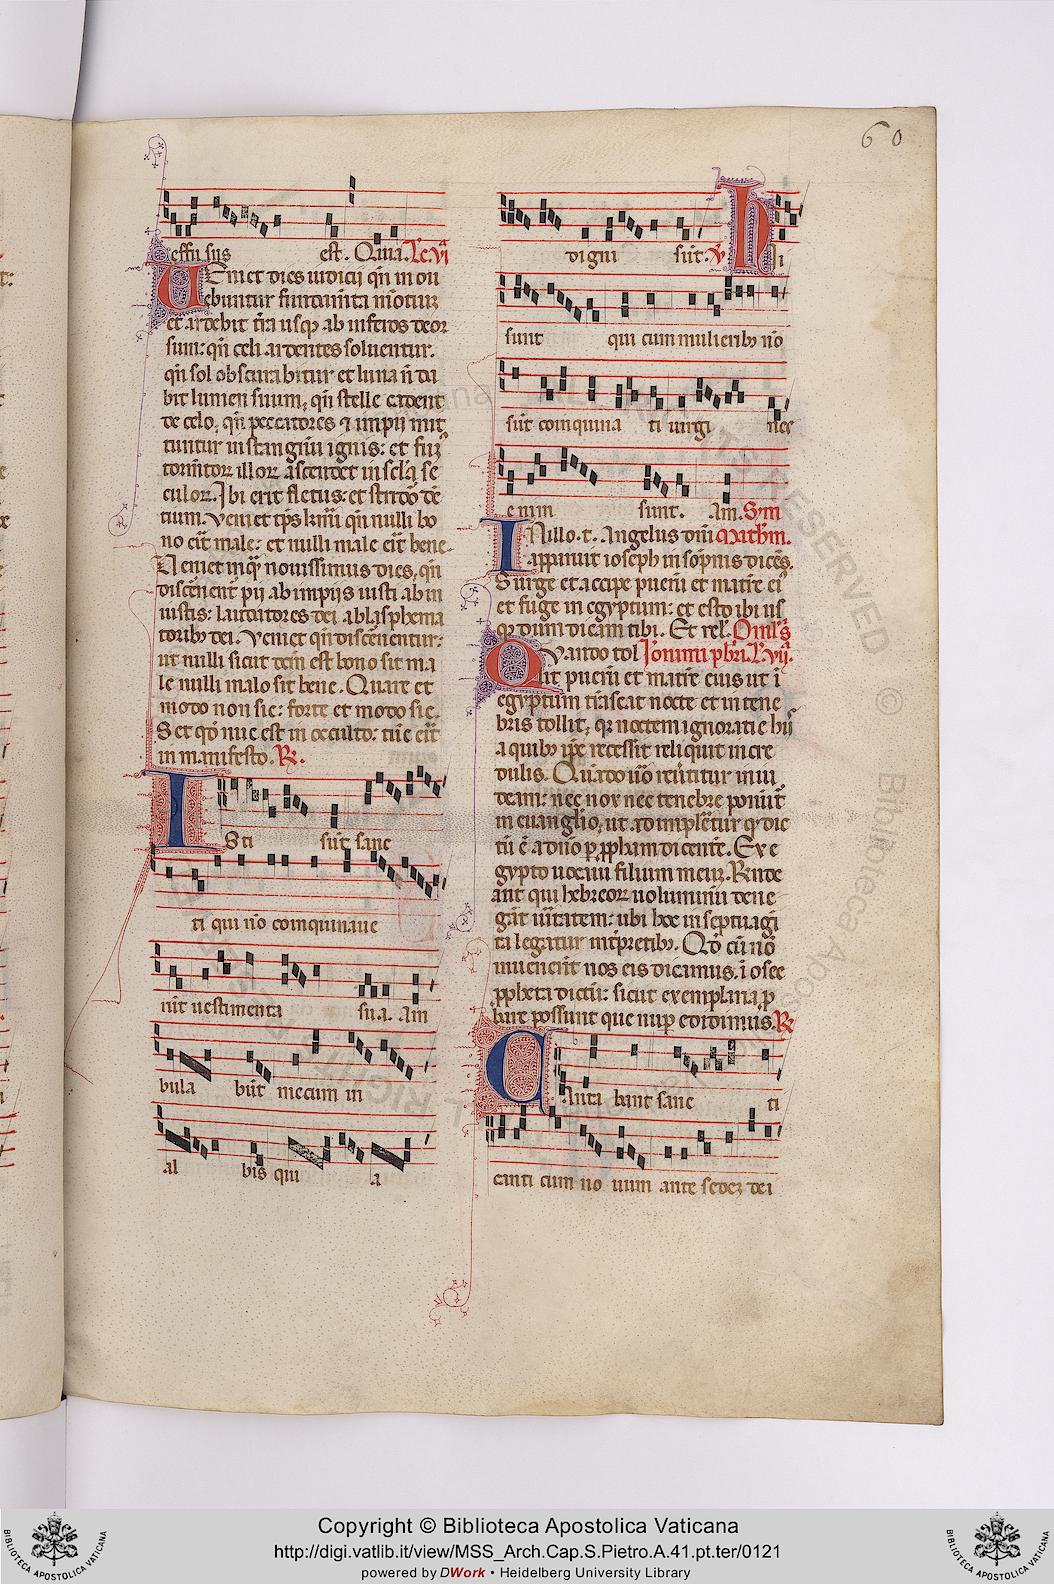 60
effusus est. Quia. Lc. vi
Veniet dies iudicij qn̄ mou
ebuntur fundam̄ta mōtiuꝫ
et ardebit t̄ra usqꝫ ab inferos deor
sum: qn̄ celi ardentes soluentur.
qn̄ sol obscurabitur et luna n̄ da
bit lumen suum, qn̄ stelle cadent
de celo, qn̄ peccatores ⁊ impij mit
tuntur in stangnū ignis: et fuꝫ
torm̄toꝝ illoꝝ ascendet in scl̄a se
culoꝝ. Ibi erit fletus: et stridō dē
tium. Veniet tp̄s
no eīt male: et nulli male eīt bene.
Veniet inqͣ nouissimus dies, qn̄
discēnent̄ pij ab impijs iusti ab in
iustis: laudatores dei a blasphema
toribꝫ dei. Veniet qn̄ discēnentur:
ut nulli sicut est bono sit ma
le nulli malo sit bene. Quare et
modo non sic: forte et modo sic.
Set qd̄ nūc est in occulto: tūc eīt
in manifesto. R.
Isti sūt sanc
ti qui nō coinquinaue
rūt uestimenta sua. Am
bula būt mecum in
al bis qui a
digni sūt. V. Hi
sunt qui cum mulieribꝫ nō
sūt coinquina ti uirgi nes
enim sunt. Am. Sym
In illo. t. Angelus dn̄i Math̄m.
apparuit ioseph in sōpnis dicēs.
Surge et accipe pueꝝ et matrē eiꝰ
et fuge in egyptum: et esto ibi us
qꝫ dum dicam tibi. Et rel. Oml̄s
Quando tol Ieronimi pb̄ri. L. vij.
lit pueꝝ et matrē eius ut ī
egyptum trāseat nocte et in tene
bris tollit, qꝛ noctem ignorātie hijs
a quibꝫ ip̄e recessit reliquit incre
dulis. Quādo uō reūtitur in iu
deam: nec nox nec tenebre ponūt̄
in euanglio, ut adimplēt̄ur qd̄ dic
tū ē a dn̄o ꝑ ꝓph̄am dicente. Ex e
gypto uocaui filium meuꝫ. Rn̄de
ant qui hebreoꝝ uoluminū dene
gāt ūitatem: ubi hoc in septuagī
ta legatur int̄pretibꝫ. Qd̄ cū nō
inuenerīt nos eis dicamus. ī osee
ꝓpheta dictū: sicut exemplaria ꝓ
bare possunt que nuꝑ edidimus. R
Canta bant sanc ti
canti cum no uum ante sedeꝫ dei
Copyright © Biblioteca Apostolica Vaticana
http://digi.vatlib.it/view/MSS_Arch.Cap.S.Pietro.A.41.pt.ter/0121
powered by DWork • Heidelberg University Library
BIBLIOTECA APOSTOLICA VATICANA
BIBLIOTECA APOSTOLICA VATICANA